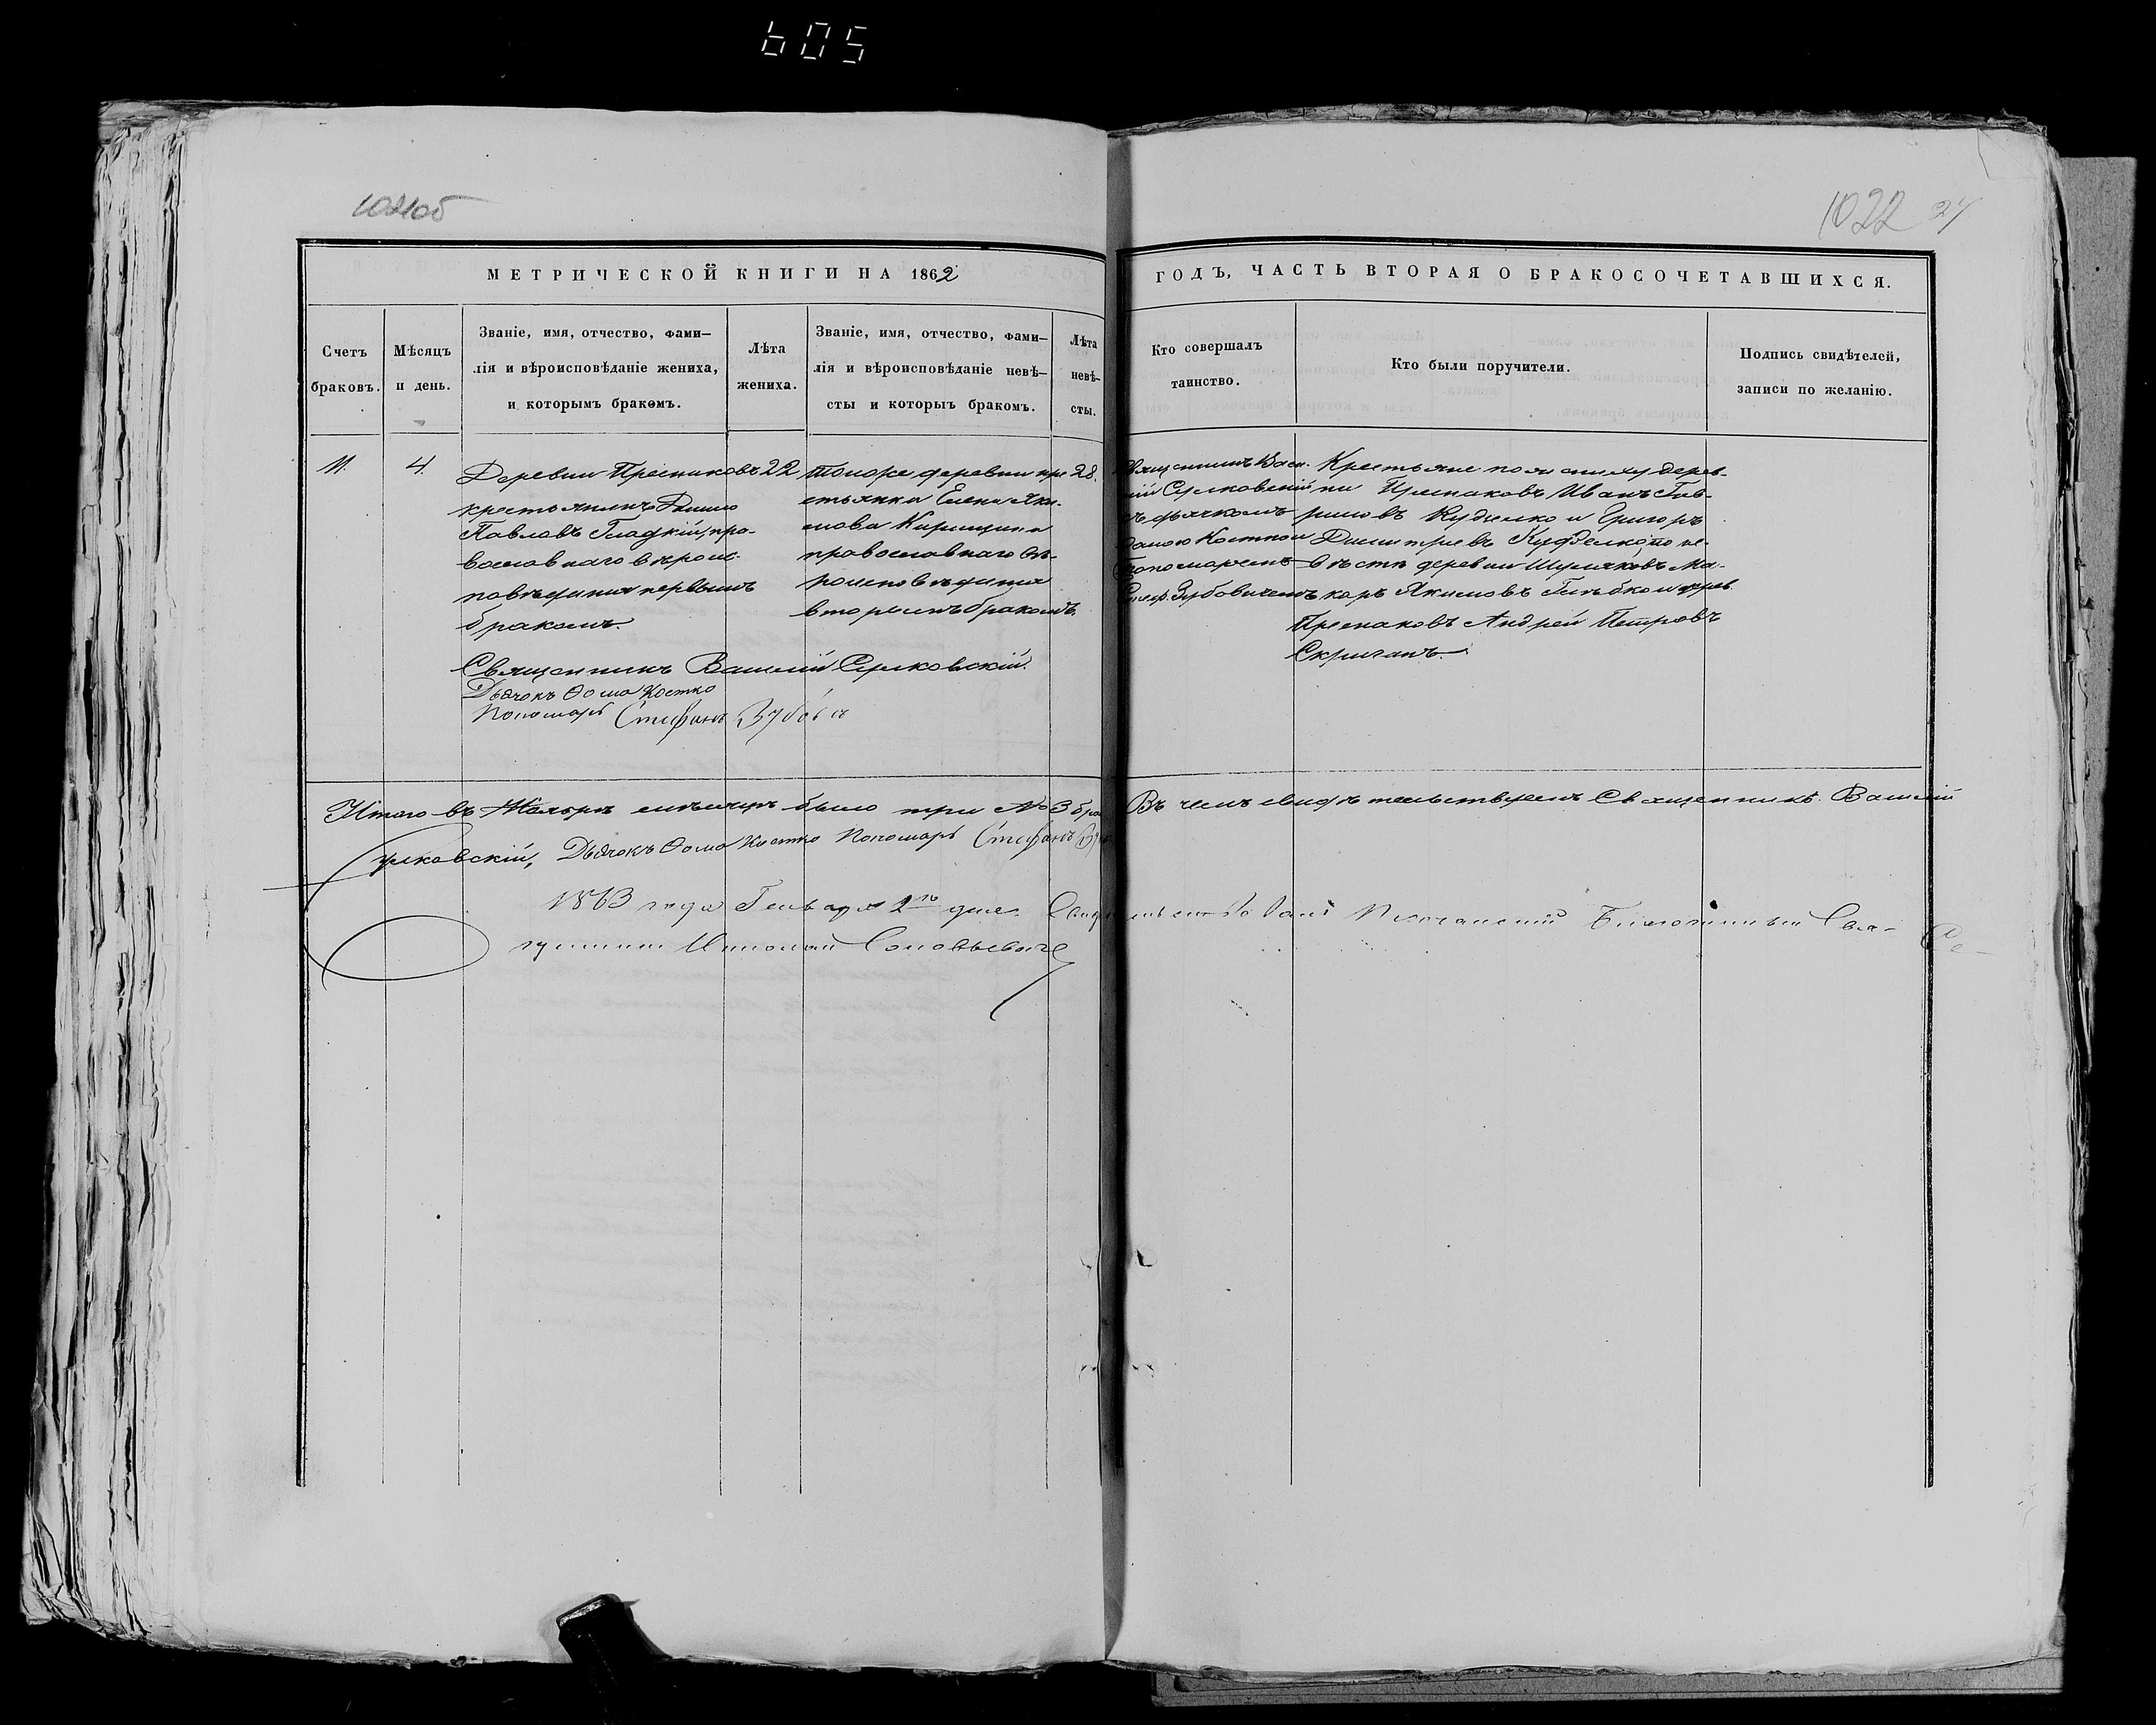 605
1021об
1022 24
МЕТРИЧЕСКОЙ КНИГИ НА 1862
ГОДЪ, ЧАСТЬ ВТОРАЯ О БРАКОСОЧЕТАВШИХСЯ.
Счетъ
браковъ.
Мѣсяцъ
и день.
Званіе, имя, отчество, фами–
лія и вѣроисповѣданіе жениха,
и которымъ бракомъ.
Лѣта
жениха.
Званіе, имя, отчество, фами–
лія и вѣроисповѣданіе невѣ–
сты и которыъ бракомъ.
Лѣта
невѣ–
сты.
Кто совершалъ
таинство.
Кто были поручители.
Подпись свидѣтелей,
записи по желанію.
11.
4.
Деревни Преснаковъ
крестьянинъ
Павловъ Гладкій, пра-
вославнаго вѣроис-
повѣданія первымъ
бракомъ.
22
тоиоже деревни кре
стьянка Елена Яки-
мова
православнаго вѣ-
роисповѣданія
вторымъ бракомъ.
28.
Священникъ Васи-
лій Сулковскій
съ дьячкомъ
Ѳомою Косткой
Пономаремъ
Стеф. Зубовичемъ
Крестьяне по женихѣ дерев-
ни Преснаковъ Иванъ Гав-
риловъ Куделко и Григоръ
Димитріевъ Куделко, по не-
вѣстѣ деревни Шулаковъ Ма-
каръ Якимовъ Глѣбко и дерев.
Преснаковъ Андрей Петровъ
Скриганъ.
Священникъ Василій Сулковскій.
Дьячокъ Ѳома Костко
Пономарь Стефанъ Зубовичъ
Итого въ Ноябрѣ мѣсяцѣ было три № 3 бра Въ чемъ свидѣтельствуемъ Священникъ Василій
Сулковскій, Дьячокъ Ѳома Костко Пономарь Стефанъ
1863 года Генваря 2го дня. Свидѣтельствовалъ Благочинный Свя-
щенникъ Николай Соловьевичъ